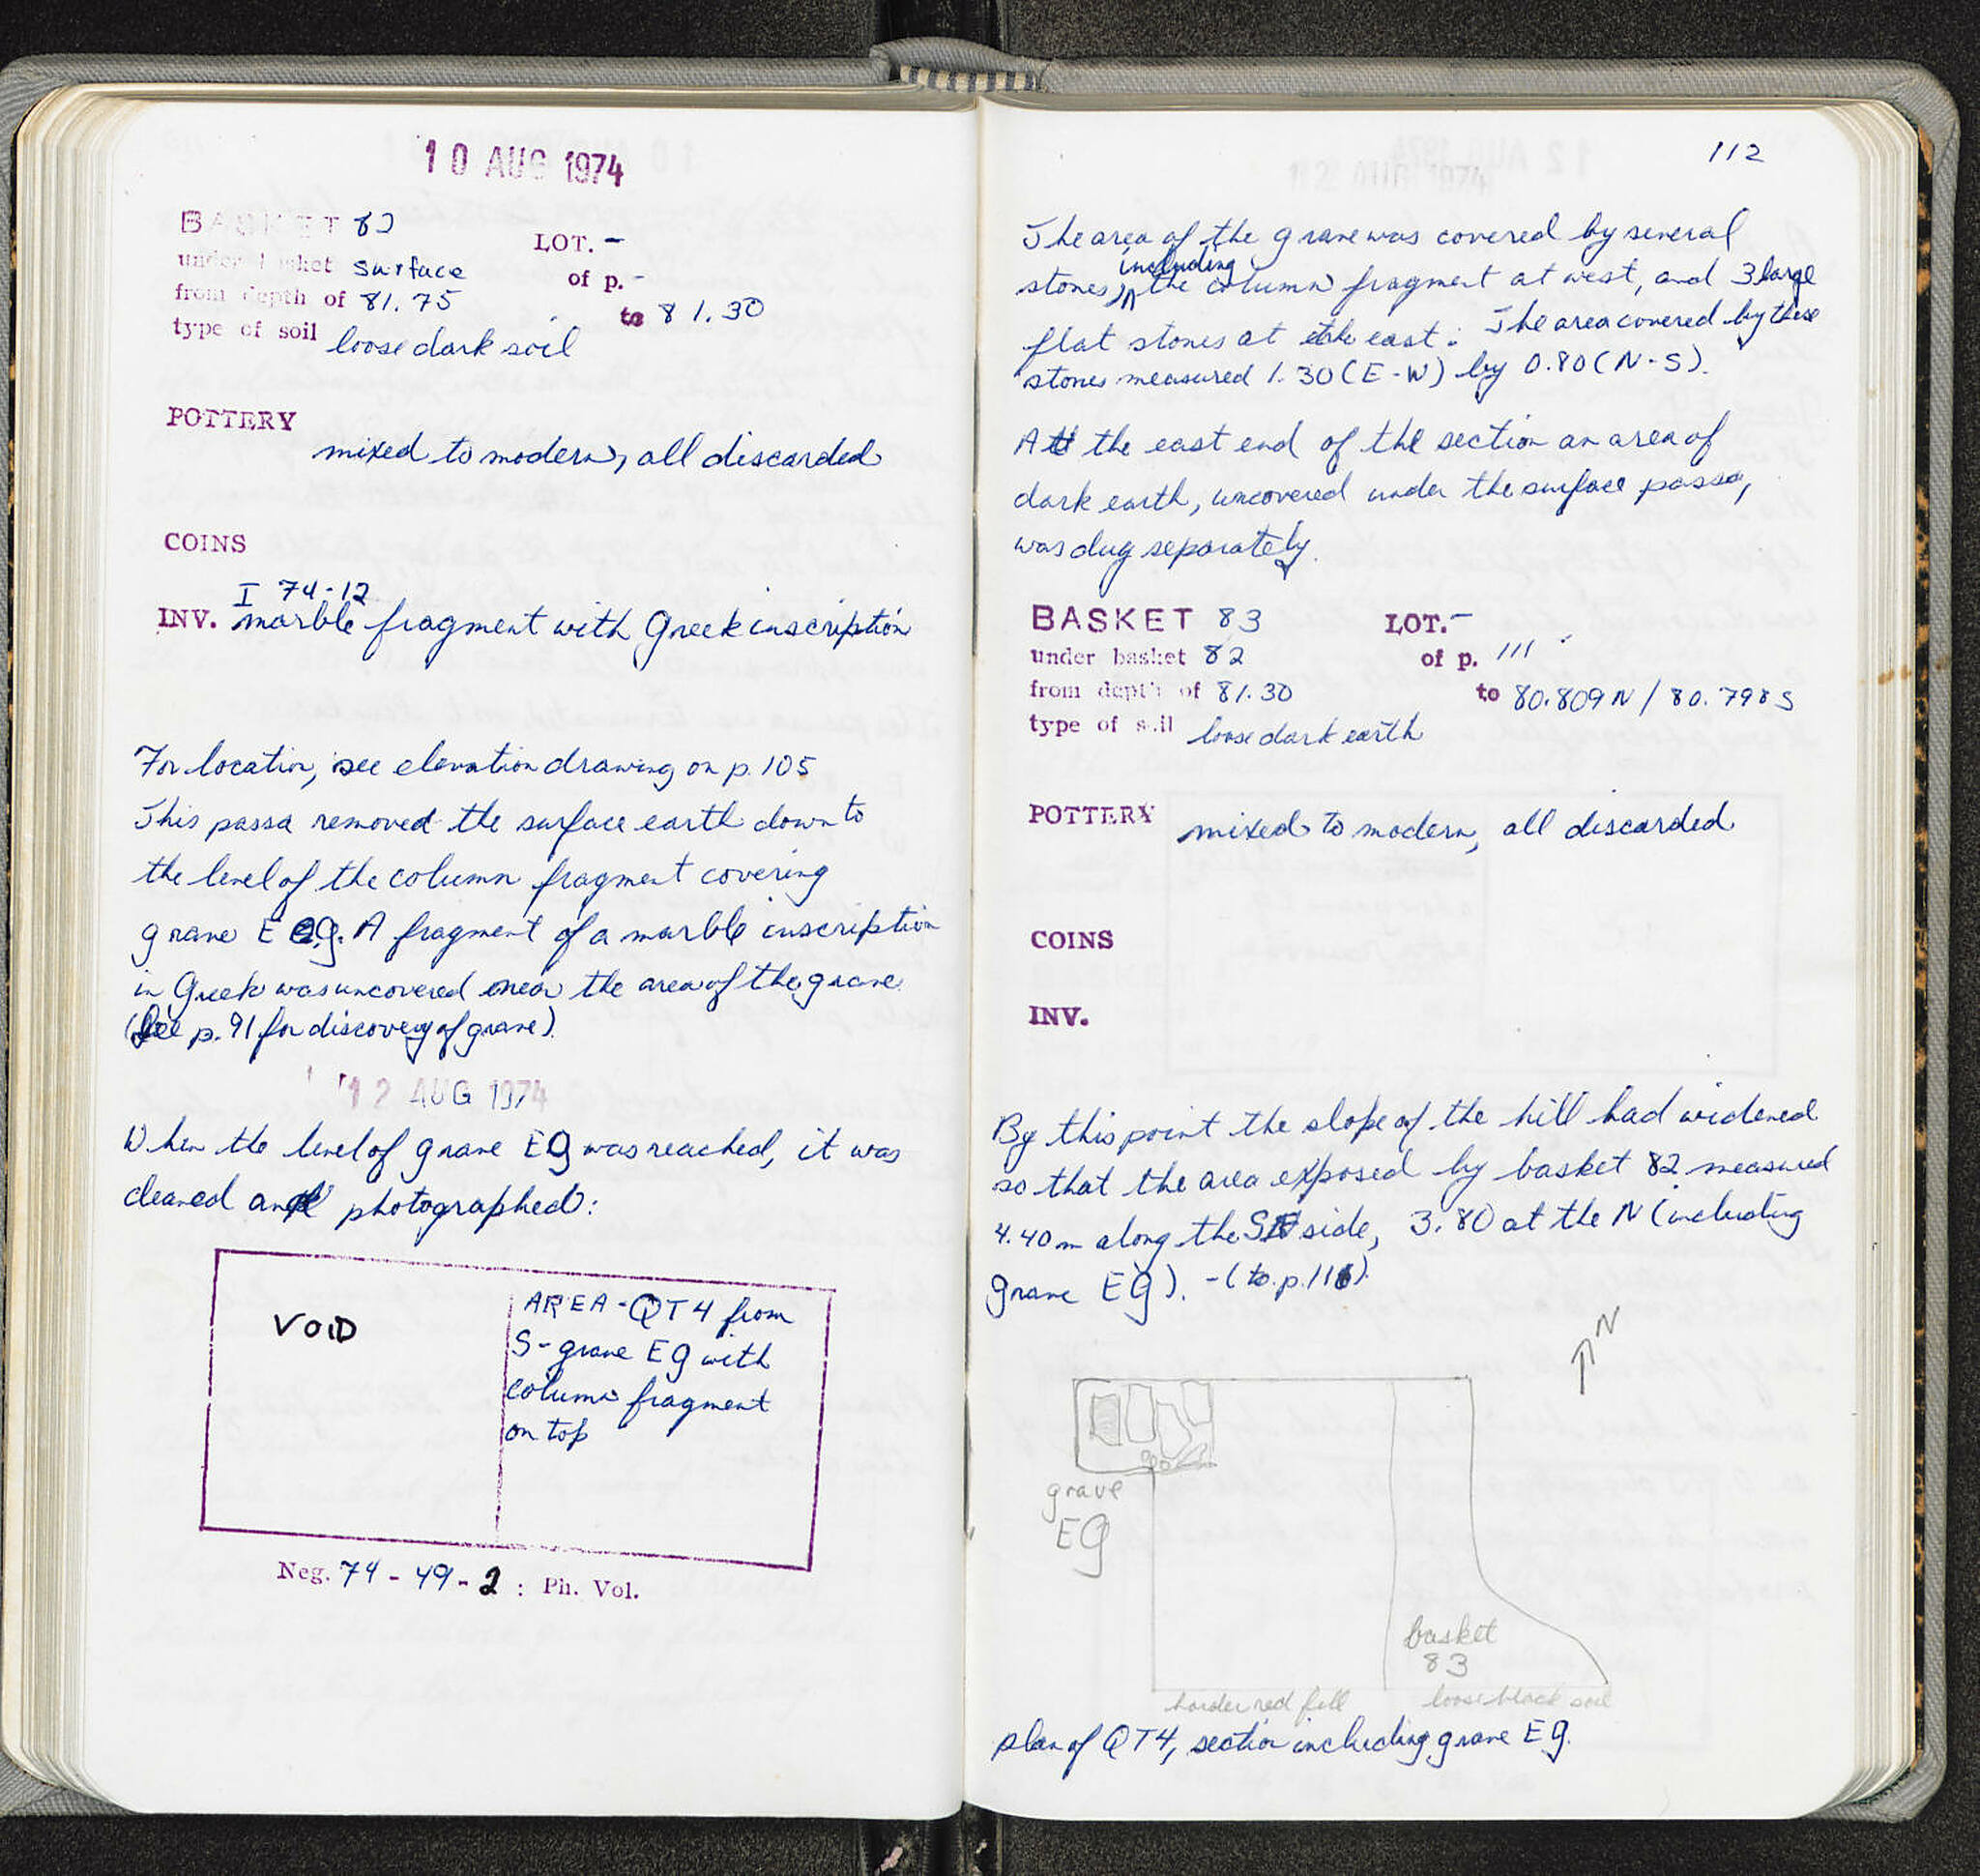 10 AUG 1974
BASKET 82
LOT. -
under basket surface
of p. -
from depth of 81.75
to 81.30
type of soil loose dark soil
POTTERY
mixed to modern, all discarded
COINS
I 74-12
INV. marble fragment with Greek inscription
For location, see elevation drawing on p. 105
This passa removed the surface earth down to
the level of the column fragment covering
grave Eg. A fragment of a marble inscription
in Greek was uncovered near the area of the grave
(See p. 91 for discovery of grave).
12 AUG 1974
When the level of grave Eg was reached, it was
cleaned and photographed:
VOID
AREA - QT4 from
S - grave Eg with
column fragment
on top
Neg. 74 - 49 - 2 : Ph. Vol.
112
The area of the grave was covered by several
stones, including the column fragment at west, and 3 large
flat stones at the east. The area covered by these
stones measured 1.30 (E-W) by 0.80 (N-S).
At the east end of the section an area of
dark earth, uncovered under the surface passa,
was dug separately.
BASKET 83
LOT. -
under basket 82
of p. 111
from depth of 81.30
to 80.809 N / 80.798 S
type of soil loose dark earth
POTTERY mixed to modern, all discarded
COINS
INV.
By this point the slope of the hill had widened
so that the area exposed by basket 82 measured
4.40 m along the S side, 3.80 at the N (including
grave Eg). - (to p. 116).
N
grave
Eg
basket
83
harder red fill
loose black soil
plan of QT4, section including grave Eg.